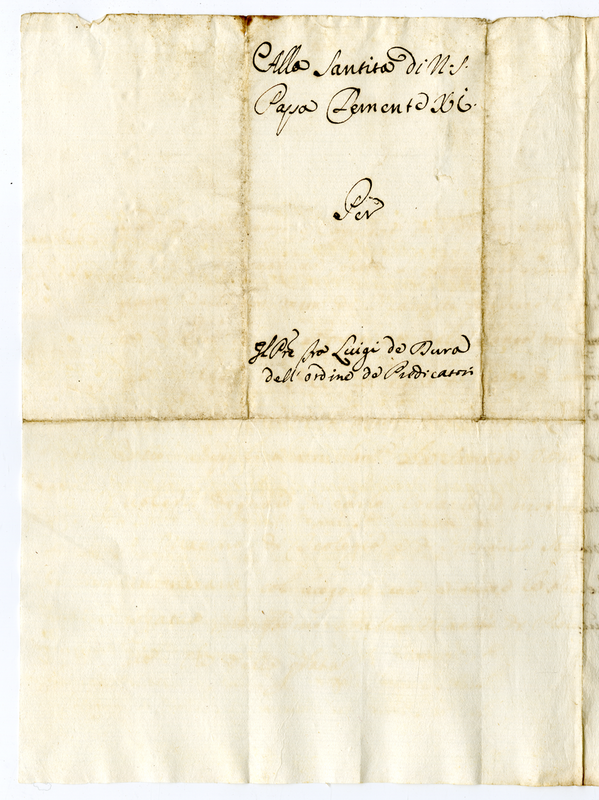 Alla Santità di N. S.
Papa Clemente XI.
Per
Il Pre fra Luigi de Dura
dell'ordine de Predicatori